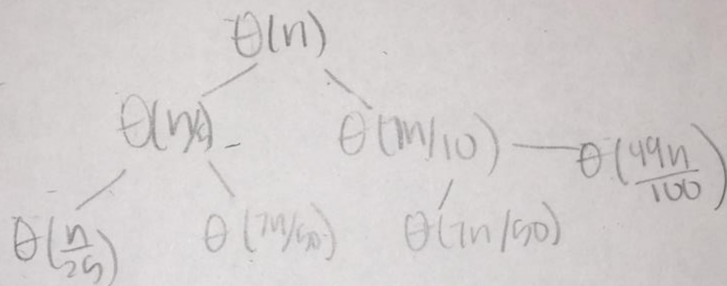 θ(n)
θ(n/5) θ(7n/10) θ(49n/100)
θ(n/25) θ(7n/50) θ(7n/50)